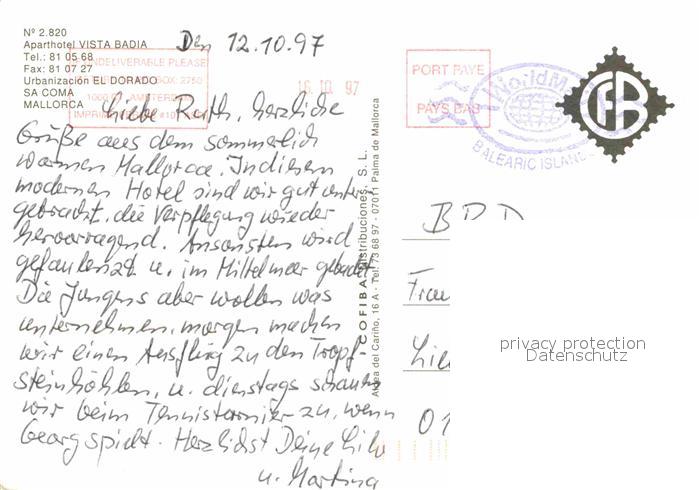 Nº 2.820
Aparthotel VISTA BADIA
Tel.: 81 05 68
Fax: 81 07 27
Urbanización EL DORADO
SA COMA
MALLORCA
Den 12.10.97
UNDELIVERABLE PLEASE
BOX: 2750
AMSTERDAM
16.10.97
PORT PAYE
PAYS BAS
WorldM
BALEARIC ISLAND
Liebe Ruth, herzliche
Grüße aus dem sommerlich
warmen Mallorca. In diesem
modernen Hotel sind wir gut unter
gebracht, die Verpflegung wieder
hervorragend. Ansonsten wird
gefaulenzt u. im Mittelmeer gebadet
Die Jungens aber wollen was
unternehmen, morgen machen
wir einen Ausflug zu den Tropf-
steinhöhlen, u. dienstags schauen
wir beim Tennisturnier zu, wenn
Georg spielt. Herzlichst Deine
u. Martina
COFIBA Distribuciones, S. L.
del Cariño, 16 A - Tel. 73 68 97 - 07011 Palma de Mallorca
BDD
Frau
01
privacy protection
Datenschutz